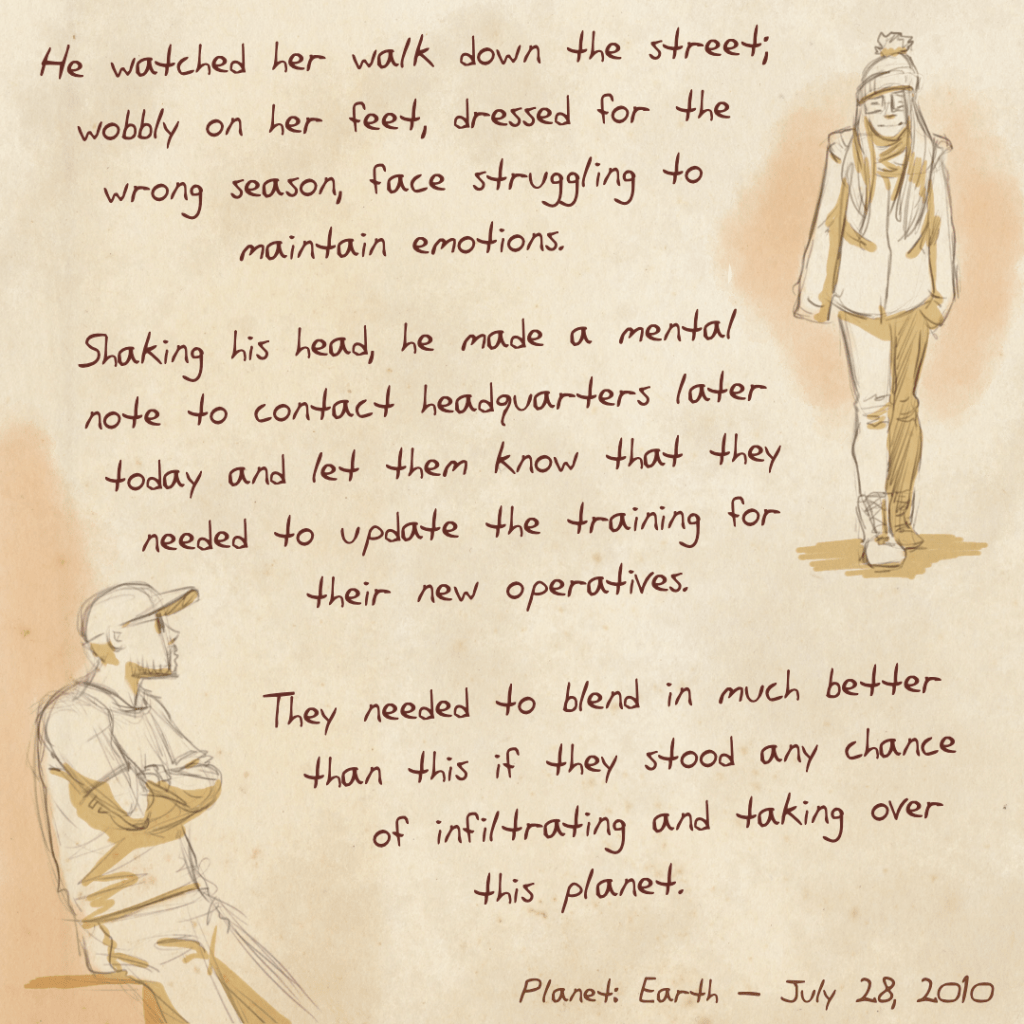 He watched her walk down the street;
wobbly on her feet, dressed for the
wrong season, face struggling to
maintain emotions.
Shaking his head, he made a mental
note to contact headquarters later
today and let them know that they
needed to update the training for
their new operatives.
They needed to blend in much better
than this if they stood any chance
of infiltrating and taking over
this planet.
Planet: Earth – July 28, 2010